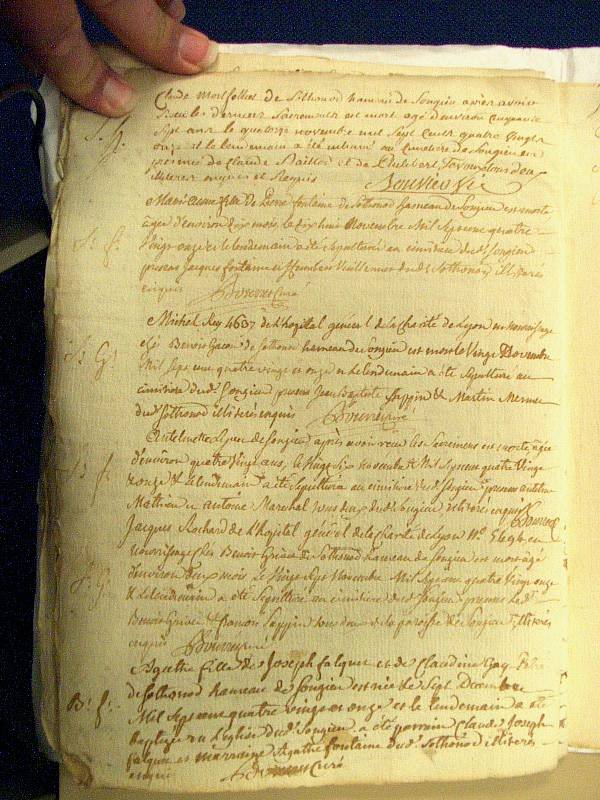 Claude mortfollier de Sothonod hameau de Songieu après avoir
reçu les derniers Sacrements est mort agé d'environ cinquante
Sept ans le quatorze novembre mil Sept Cents quatre vingt
onze et le lendemain a été inhumé au Cimetière de Songieu en
présence de Claude et de Philibert
illiteres enquis et Requis
S. G.
Marie fille de Pierre fontaine de Sothonod hameau de Songieu est morte
âgée d'environ dix mois, le dix huit Novembre Mil Sept cent quatre
vingt onze et le lendemain a été Sepulturée au cimitière dud. Songieu
présens Jacques fontaine et dud. Sothonod illiterés
enquis curé
S. f.
Michel Rey 4637 de l'hopital général de la Charité de Lyon en Nourrissage
chés Benoit de Sothonod hameau de Songieu est mort le Vingt Novembre
Mil Sept cent quatre vingt et onze et le lendemain a été Sepulturé au
cimitière dud. Songieu présens Jean Baptiste et Martin
dud. Sothonod illiterés enquis curé
S. G.
Antelmette de Songieu après avoir reçu les Sacrements est morte agée
d'environ quatre Vingt ans, le Vingt Six novembre Mil Sept cent quatre Vingt
onze & le lendemain a été Sepulturée au cimitière dud. Songieu présens
Mathieu et Antoine Marechal tous deux dud. Songieu illiterés enquis
S. f.
Jacques Rochard de l'hopital général de la charité de Lyon
nourrissage chés Benoit de Sothonod hameau de Songieu est mort agé
d'environ deux mois le Vingt Sept Novembre Mil Sept cent quatre Vingt onze
& le lendemain a été Sepulturé au cimitière dud. Songieu présens le d.
Benoit & françois tous deux de la paroisse de Songieu illiterés
enquis curé
S. G.
Agathe fille de Joseph falquet et de Claudine Gay
de Sothonod hameau de Songieu est née le Sept Decembre
Mil Sept cent quatre vingt et onze et le lendemain a été
Baptisée en l'église dud. Songieu, a été parrain Claude Joseph
falquet et marraine Agathe fontaine dud. Sothonod illiterés
enquis curé
B. f.